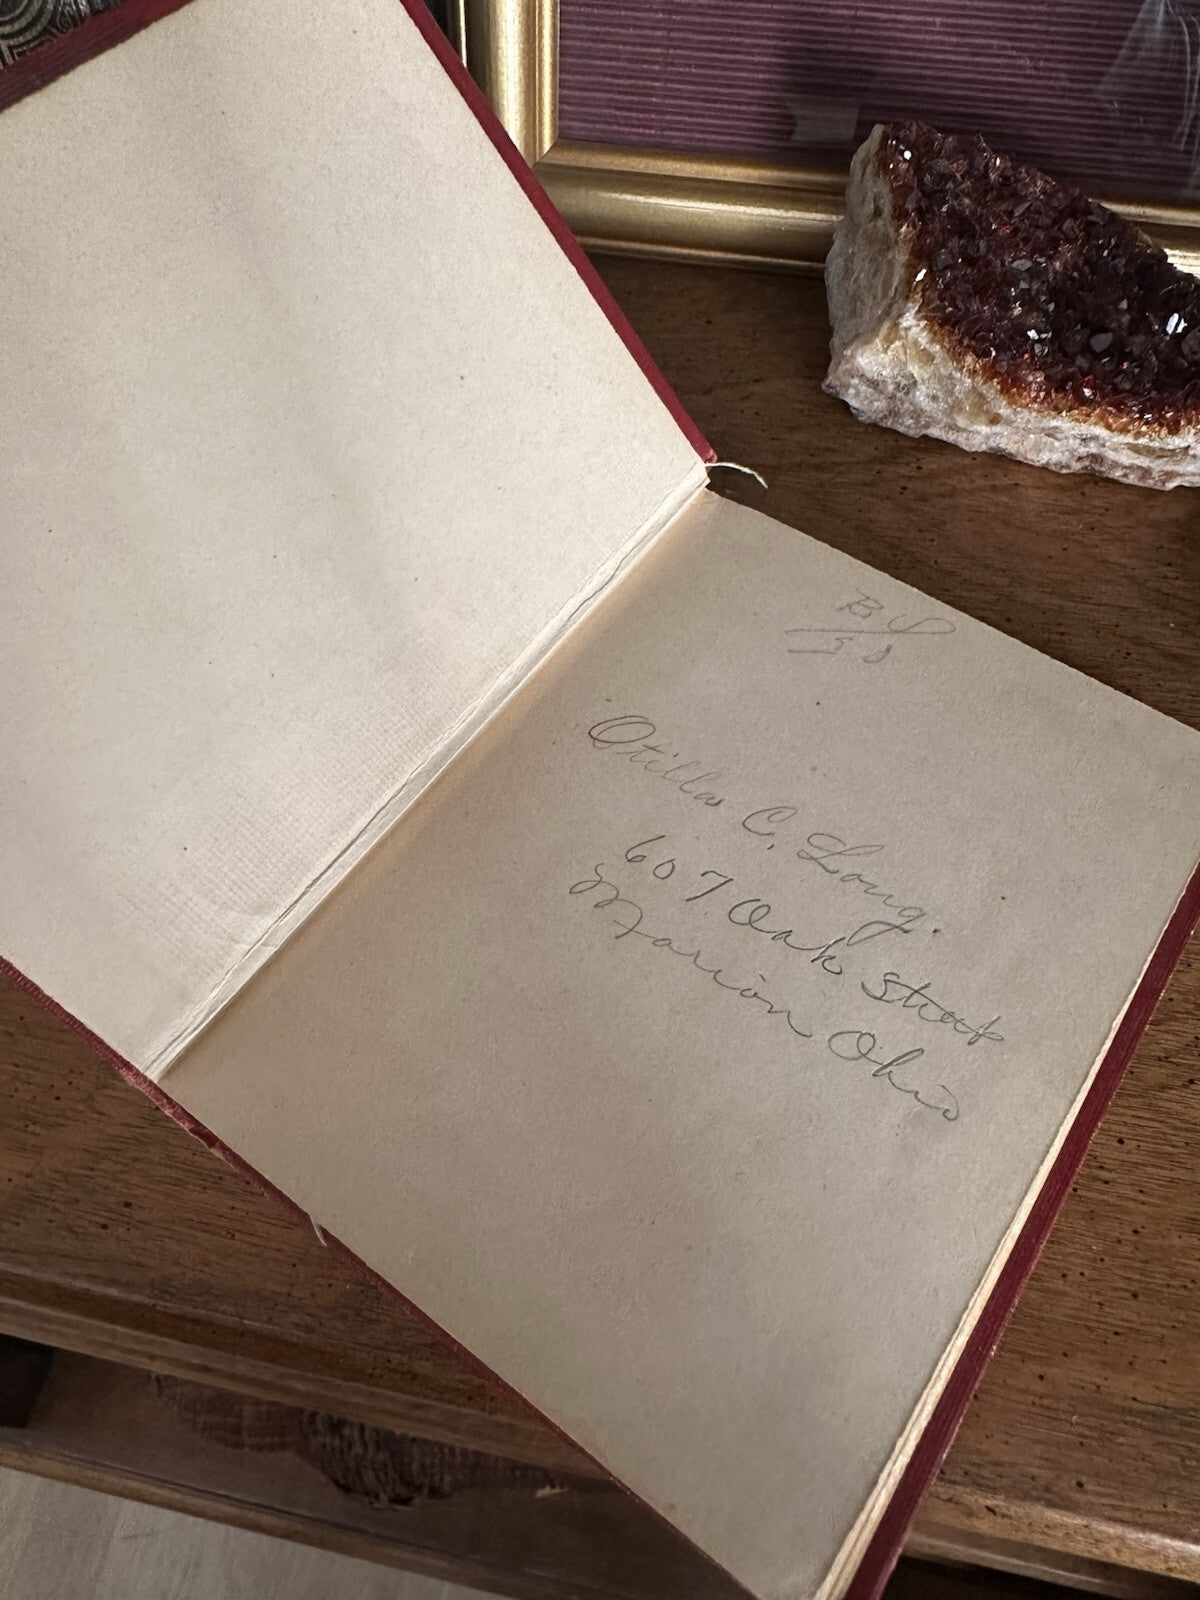 Otilla C. Long.
607 Oak Street
Marion Ohio